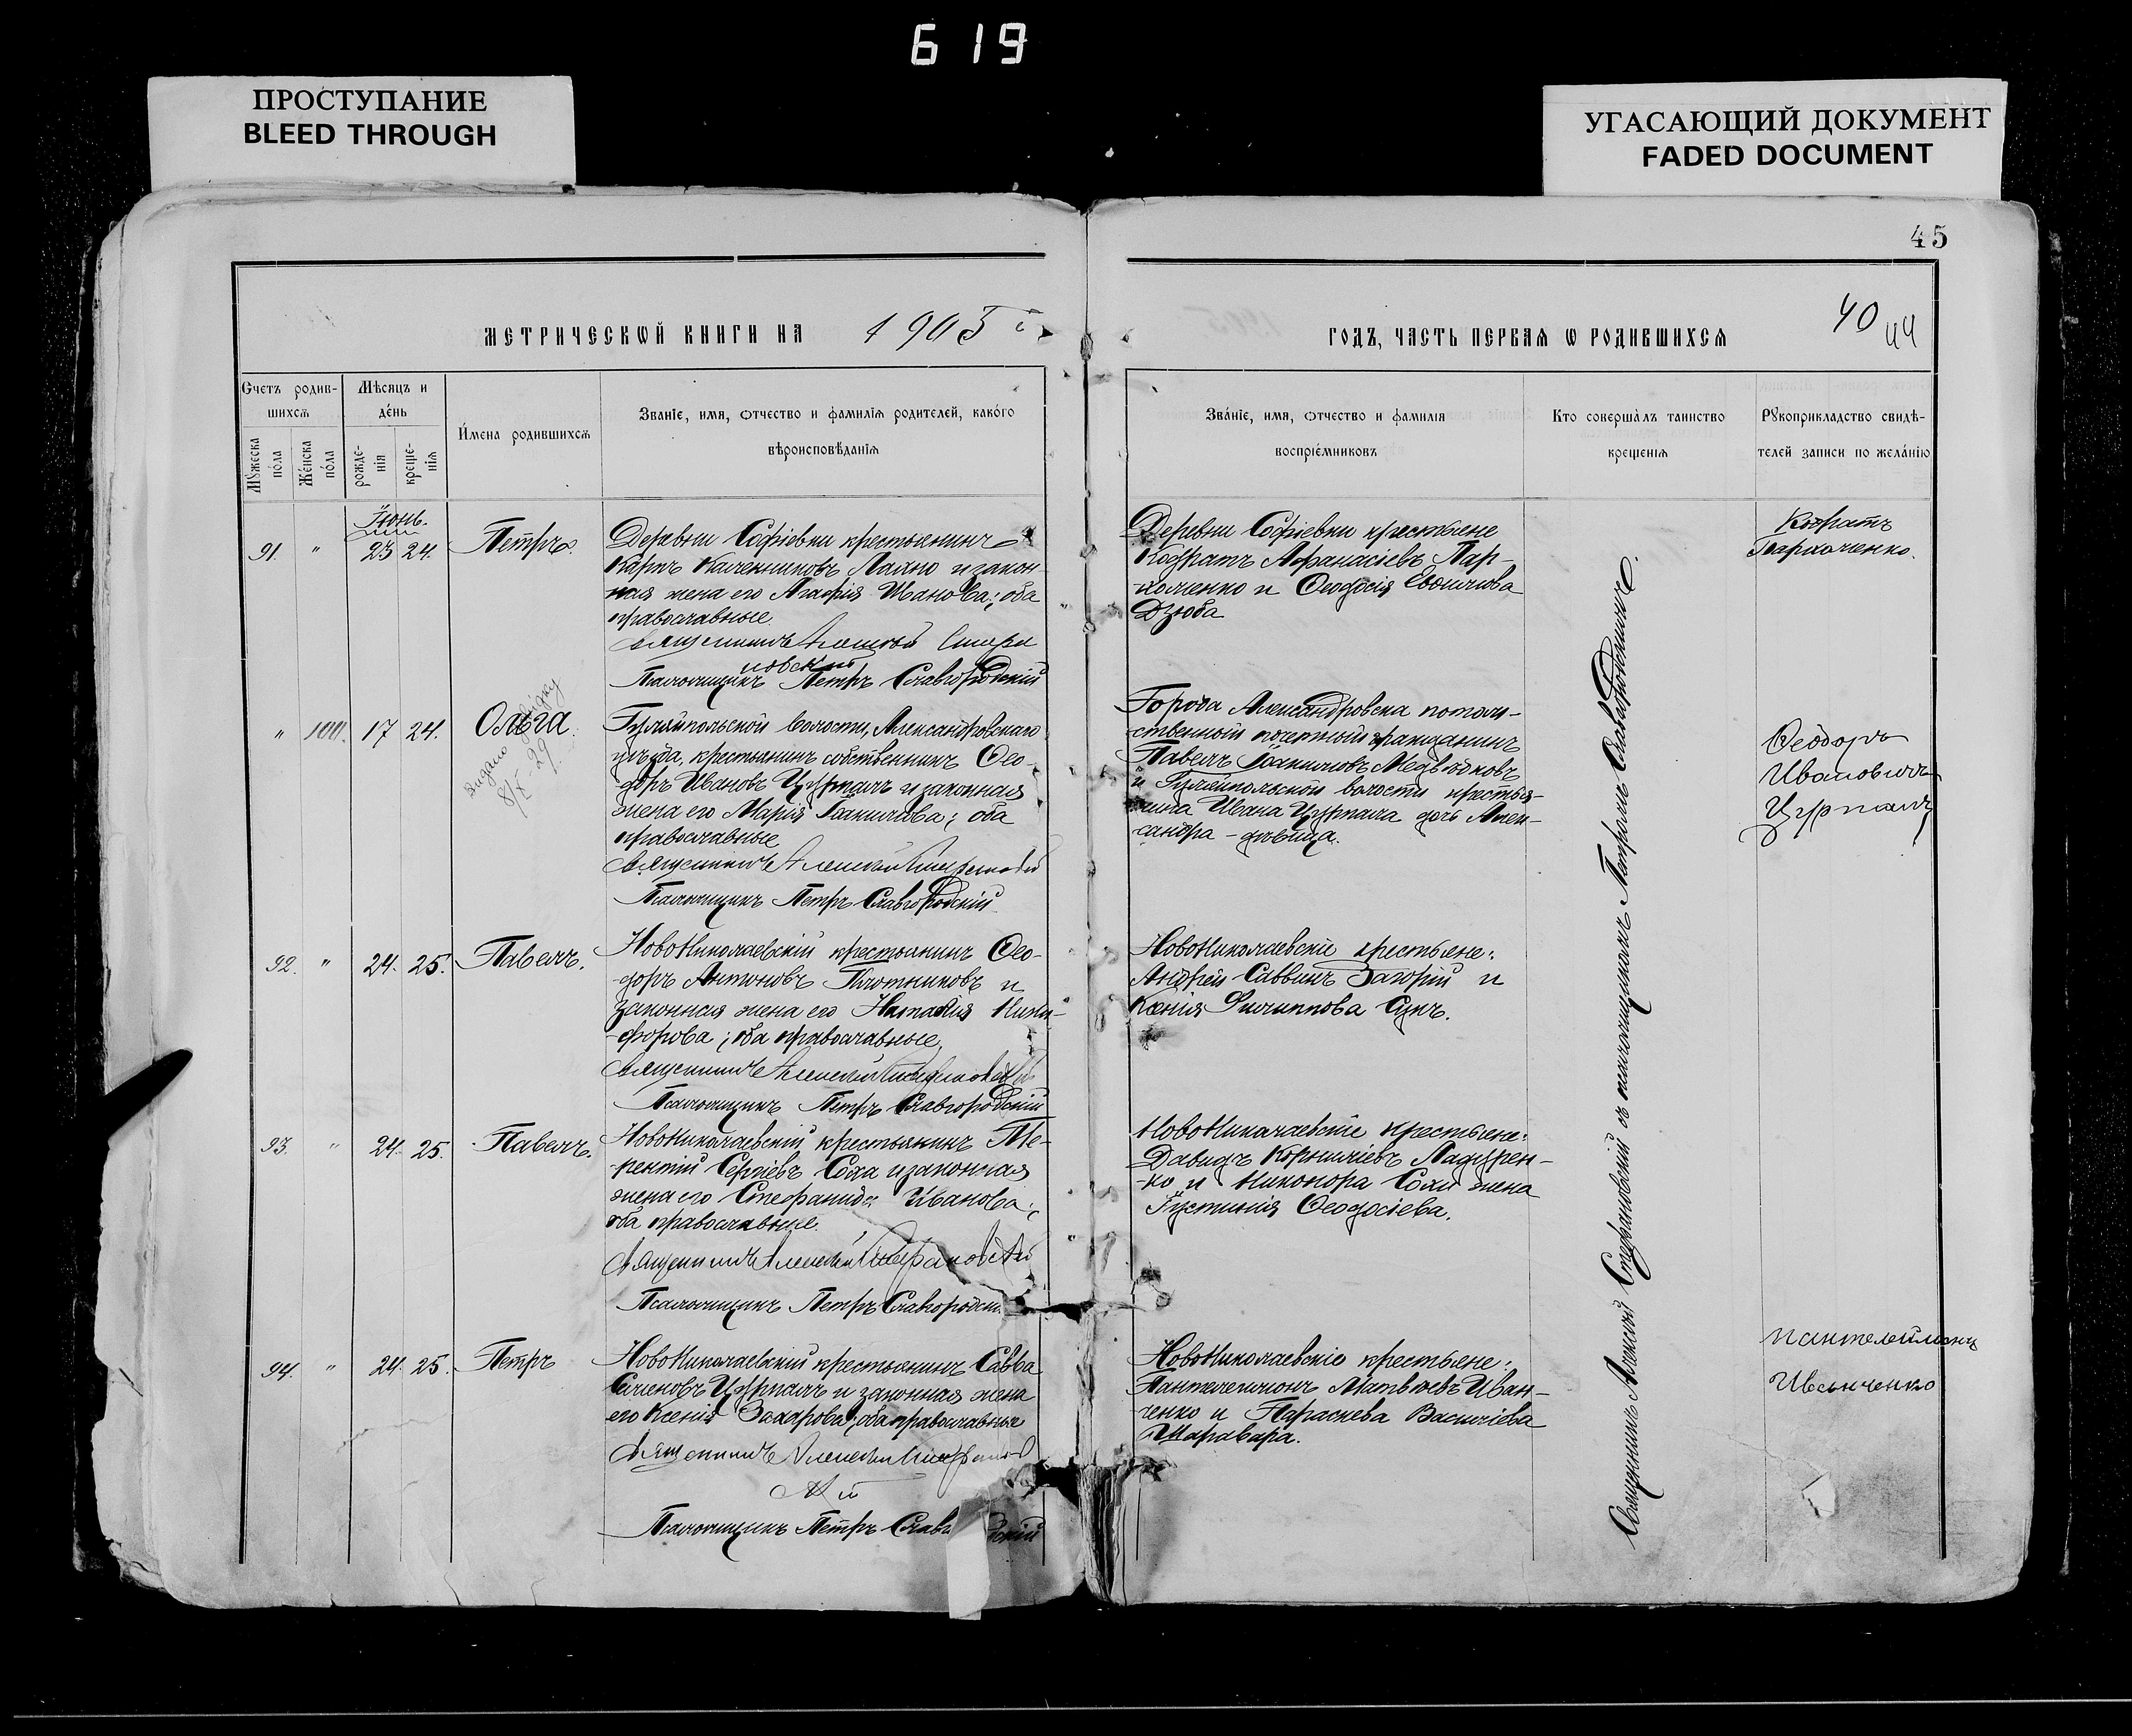 619
ПРОСТУПАНИЕ
BLEED THROUGH
УГАСАЮЩИЙ ДОКУМЕНТ
FADED DOCUMENT
45
МЕТРИЧЕСКѠЙ КНИГИ НА 1905 г.
ГОДЪ, ЧАСТЬ ПЕРВАѦ Ѡ РОДИВШИХСѦ
40
44
Счетъ родив-
шихсѧ
Мꙋжеска
по́ла
Же́нска
по́ла
Мѣсяцъ и
де́нь
рожде-
нія
креще-
нія
И́мена родившихсѧ
Званіе, имя, ѻтчество и фамилія родителей, како́го
вѣроисповѣданіѧ
Зва́ніе, имя, ѻтчество и фамилія
воспріе́мниковъ
Кто совершалъ таинство
крещенія
Рꙋкоприкладство свидѣ-
телей записи по жела́нію
Іюнь.
91. " 23 24. Петръ
Деревни Софіевки крестьянинъ
Карпъ Калениковъ Лахно и закон-
ная жена его Агафія Иванова; оба
православные
Священникъ Алексѣй Стефа
новскій
Псаломщикъ Петръ Славгородскій
Деревни Софіевки крестьяне
Кодратъ Афанасіевъ Пар-
хоменко и Ѳеодосія
Дзюба
Кодратъ
Пархоменко.
" 100. 17 24. Ольга
видано довідку
8/X-29
Гуляйпольской волости, Александровскаго
уѣзда, крестьянинъ собственникъ Ѳео-
доръ Ивановъ Цурпалъ и законная
жена его Марія Іоакимова; оба
православные
Священникъ Алексѣй Стефановскій
Псаломщикъ Петръ Славгородскій
Города Александровска потом-
ственный почетный гражданинъ
Павелъ Іоакимовъ Медвѣдковъ
и Гуляйпольской волости крестья-
нина Ивана Цурпала дочь Алек-
сандра – дѣвица.
Ѳеодоръ
Ивановичъ
Цурпалъ
92. " 24. 25. Павелъ.
НовоНиколаевскій крестьянинъ Ѳео-
доръ Антоновъ Плотниковъ и
законная жена его Наталія Ники-
форова; оба православные
Священникъ Алексѣй Стефановскій
Псаломщикъ Петръ Славгородскій
НовоНиколаевскіе крестьяне:
Андрей Саввинъ Загорій и
Ксенія Филиппова Сукъ.
93. " 24. 25. Павелъ.
НовоНиколаевскій крестьянинъ Те-
рентій Сергіевъ Соха и законная
жена его Стефанида Иванова;
оба православные.
Священникъ Алексѣй Стефановскій
Псаломщикъ Петръ Славгородскі
НовоНиколаевскіе крестьяне:
Давидъ Корниліевъ Ладурен-
ко и Никонора Сохи жена
Іустинія Ѳеодосіева.
94. " 24. 25. Петръ
НовоНиколаевскій крестьянинъ Савва
Семеновъ Цурпалъ и законная жена
его Ксенія Захарова; оба православные
Священникъ Алексѣй Стефанов
скій
Псаломщикъ Петръ Славг дскій
НовоНиколаевскіе крестьяне:
Пантелеимонъ Матвѣевъ Иван-
ченко и Параскева Василіева
Шаравара.
Пантелеймонъ
Иванченко
Священникъ Алексѣй Стефановскій съ псаломщикомъ Петромъ Славгородскимъ.